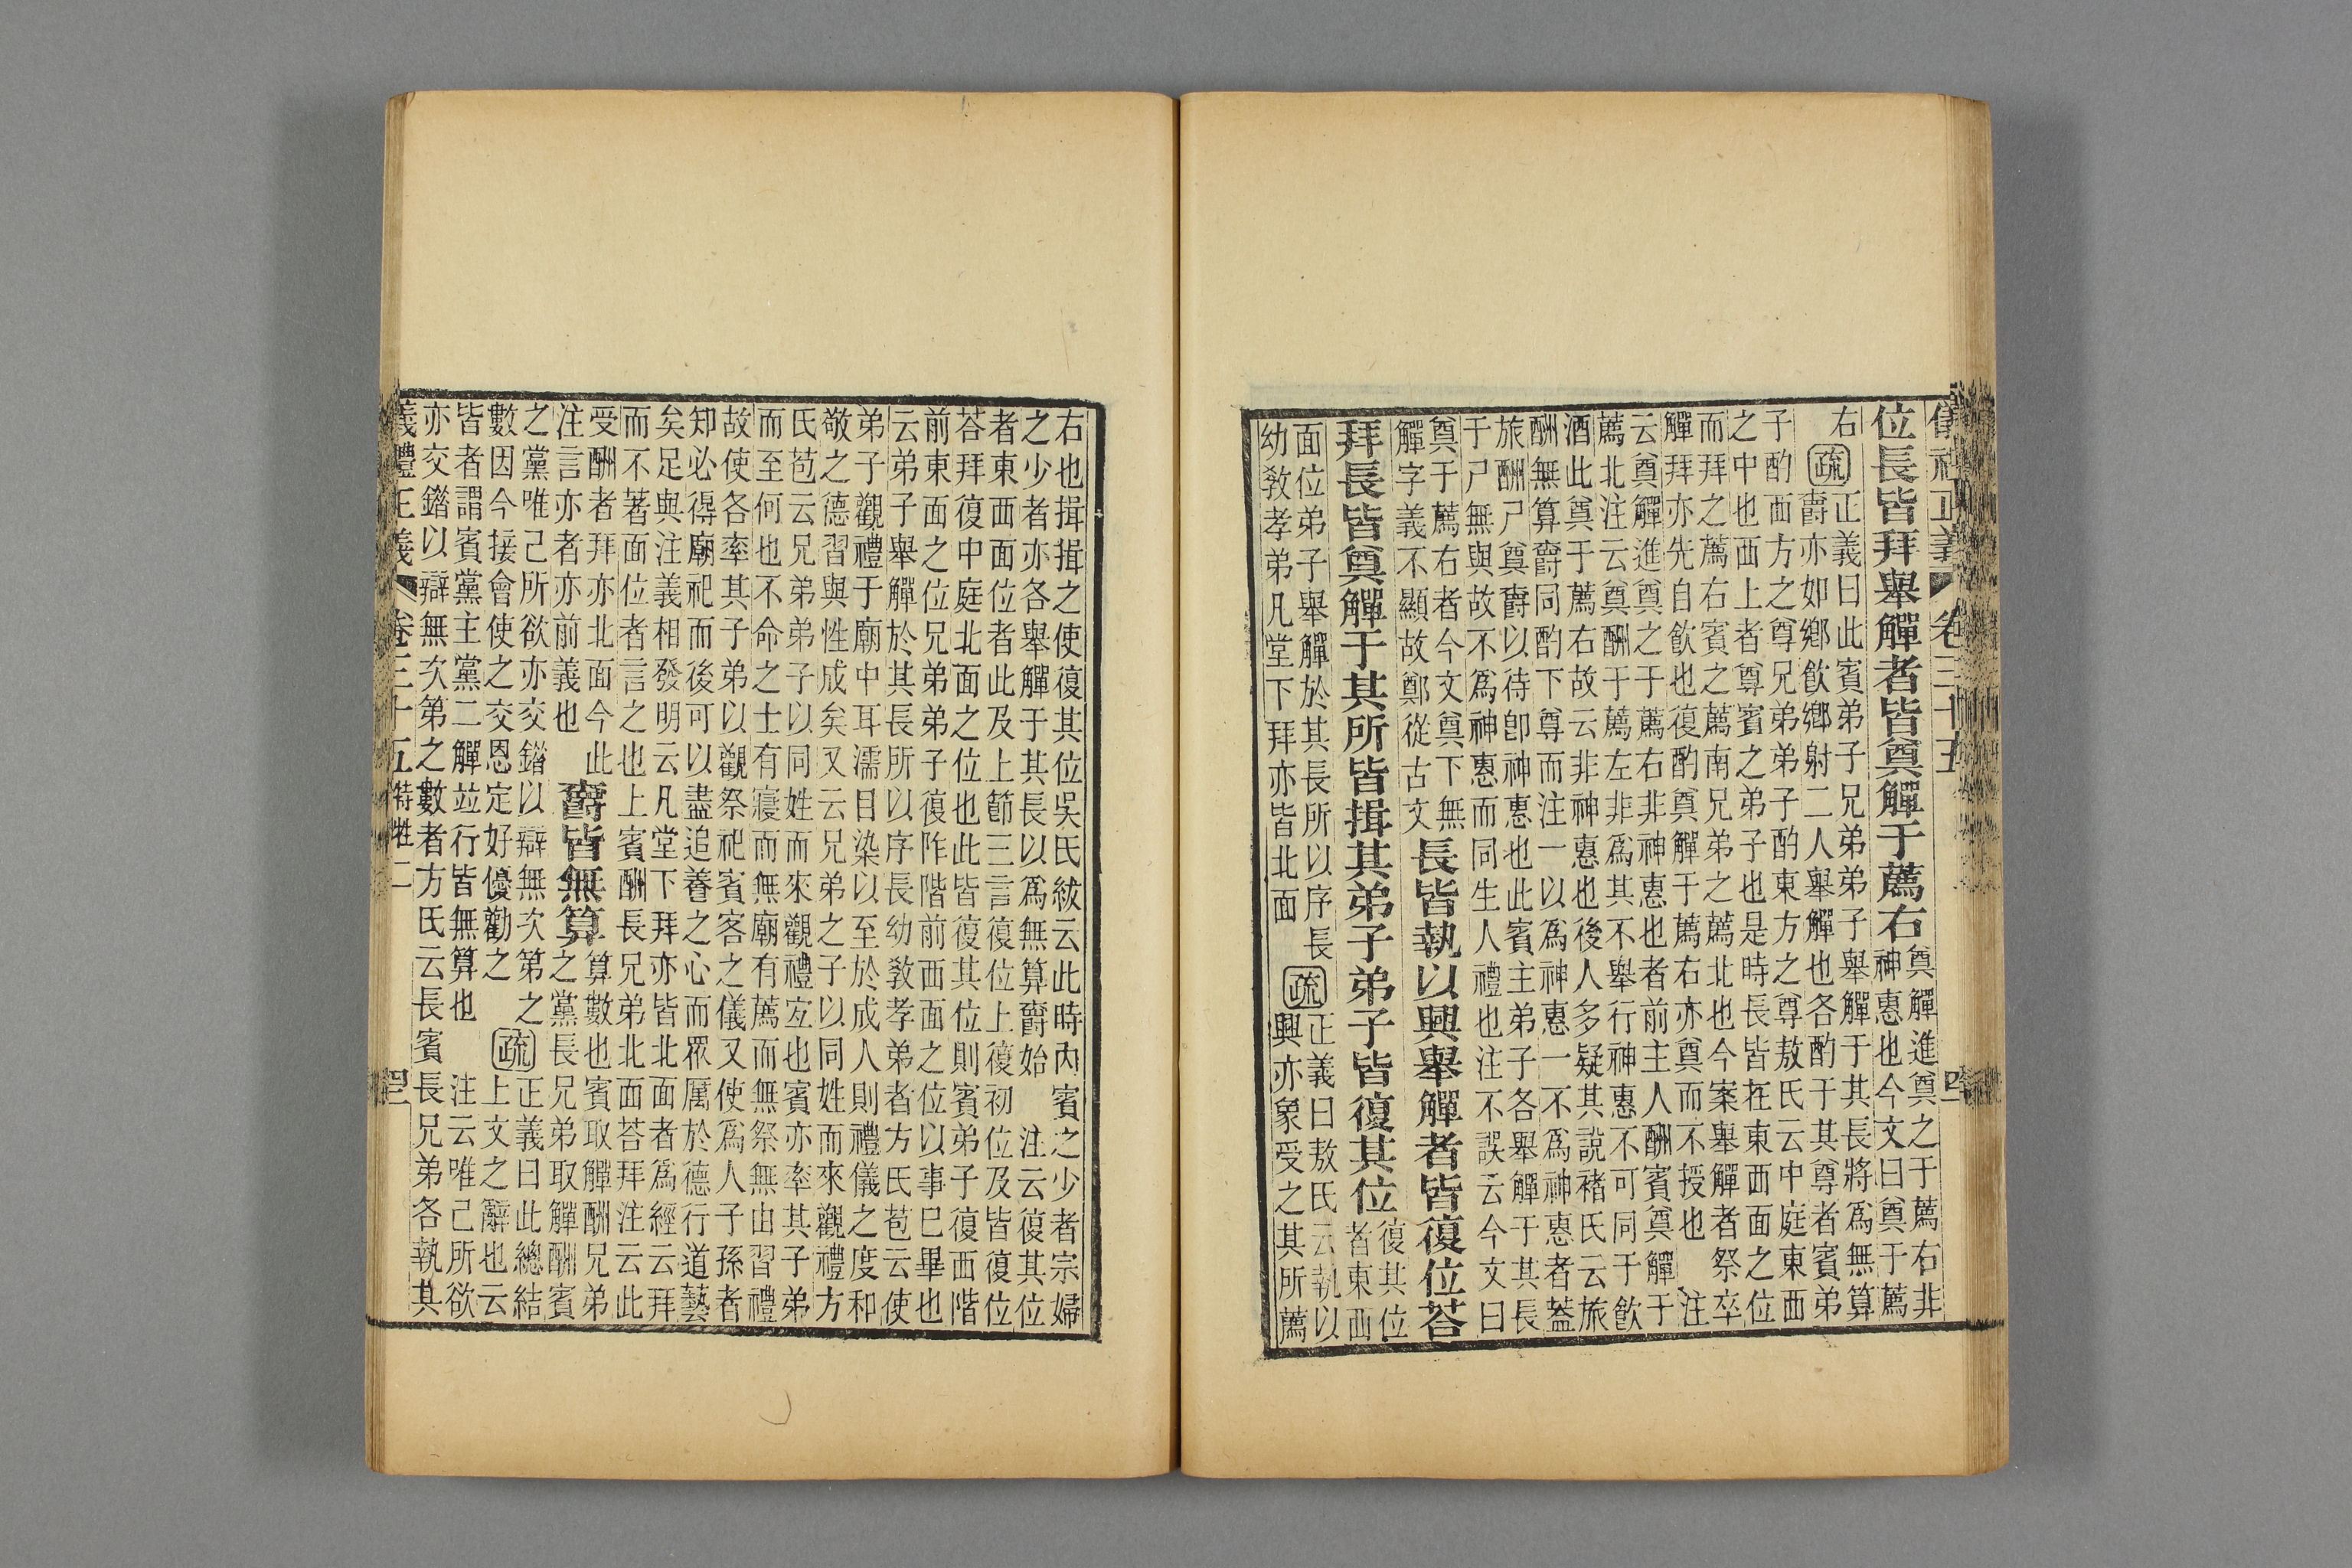 儀禮正義 卷三十五 四
位長皆拜舉觶者皆奠觶于薦右
奠觶進奠之于薦右非
神惠也今文曰奠于薦
右
疏
正義曰此賓弟子兄弟弟子舉觶于其長將爲無算
爵亦如鄉飲鄉射二人舉觶也各酌于其尊者賓弟
子酌面方之尊兄弟弟子酌東方之尊敖氏云中庭東西
之中也西上者尊賓之弟子也是時長皆在東西面之位
而拜之薦右賓之薦南兄弟之薦北也今案舉觶者祭卒
觶拜亦先自飲也復酌奠觶于薦右亦奠而不授也 注
云奠觶進奠之于薦右非神惠也者前主人酬賓奠觶于
薦北注云奠酬于薦左非爲其不舉行神惠不可同于飲
酒此奠于薦右故云非神惠也後人多疑其說褚氏云旅
酬無算爵同酌下尊而注一以爲神惠一不爲神惠者蓋
旅酬尸奠爵以待卽神惠也此賓主弟子各舉觶于其長
于尸無與故不爲神惠而同生人禮也注不誤云今文曰
奠于薦右者今文奠下無
觶字義不顯故鄭從古文
長皆執以興舉觶者皆復位荅
拜長皆奠觶于其所皆揖其弟子弟子皆復其位
復其位
者東西
面位弟子舉觶於其長所以序長
幼敎孝弟凡堂下拜亦皆北面
疏
正義曰敖氏云執以
興亦象受之其所薦
右也揖揖之使復其位吳氏紱云此時內賓之少者宗婦
之少者亦各舉觶于其長以爲無算爵始 注云復其位
者東西面位者此及上節三言復位上復初位及皆復位
荅拜復中庭北面之位也此皆復其位則賓弟子復西階
前東面之位兄弟弟子復阼階前西面之位以事巳畢也
云弟子舉觶於其長所以序長幼敎孝弟者方氏苞云使
弟子觀禮于廟中耳濡目染以至於成人則禮儀之度和
敬之德習與性成矣又云兄弟之子以同姓而來觀禮方
氏苞云兄弟弟子以同姓而來觀禮宐也賓亦率其子弟
而至何也不命之士有寢而無廟有薦而無祭無由習禮
故使各率其子弟以觀祭祀賓客之儀又使爲人子孫者
知必得廟祀而後可以盡追養之心而眾厲於德行道藝
矣足與注義相發明云凡堂下拜亦皆北面者爲經云拜
而不著面位者言之也上賓酬長兄弟北面荅拜注云此
受酬者拜亦北面今此
注言亦者亦前義也
爵皆無算
算數也賓取觶酬兄弟
之黨長兄弟取觶酬賓
之黨唯己所欲亦交錯以辯無次第之
數因今接會使之交恩定好優勸之
疏
正義曰此總結
上文之辭也云
皆者謂賓黨主黨二觶並行皆無算也 注云唯己所欲
亦交錯以辯無次第之數者方氏云長賓長兄弟各執其
義禮正義 卷三十五 特牲二 四